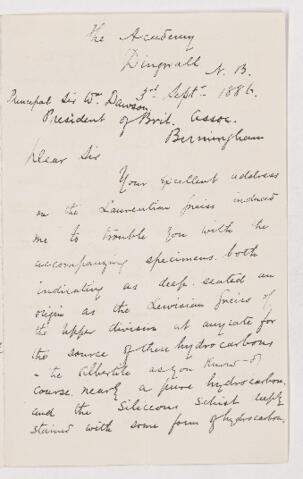 The Academy
Dingwall N. B.
3rd Sept. 1886.
Principal Sir Wm Dawson
President of Brit. Assoc.
Birmingham
Dear Sir
Your excellent address
on the Laurentian gneiss induced
me to trouble you with the
accompanying specimens both
indicating as deep-seated an
origin as the Lewisian gneiss of
the Upper division at anyrate for
the source of these hydrocarbons
- the Albertite as you know - of
course nearly a pure hydrocarbon,
and the Siliceous Schist deeply
stained with some form of hydrocarbon.